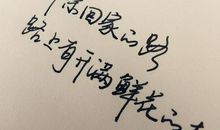 你回家的路
路上有开满鲜花的